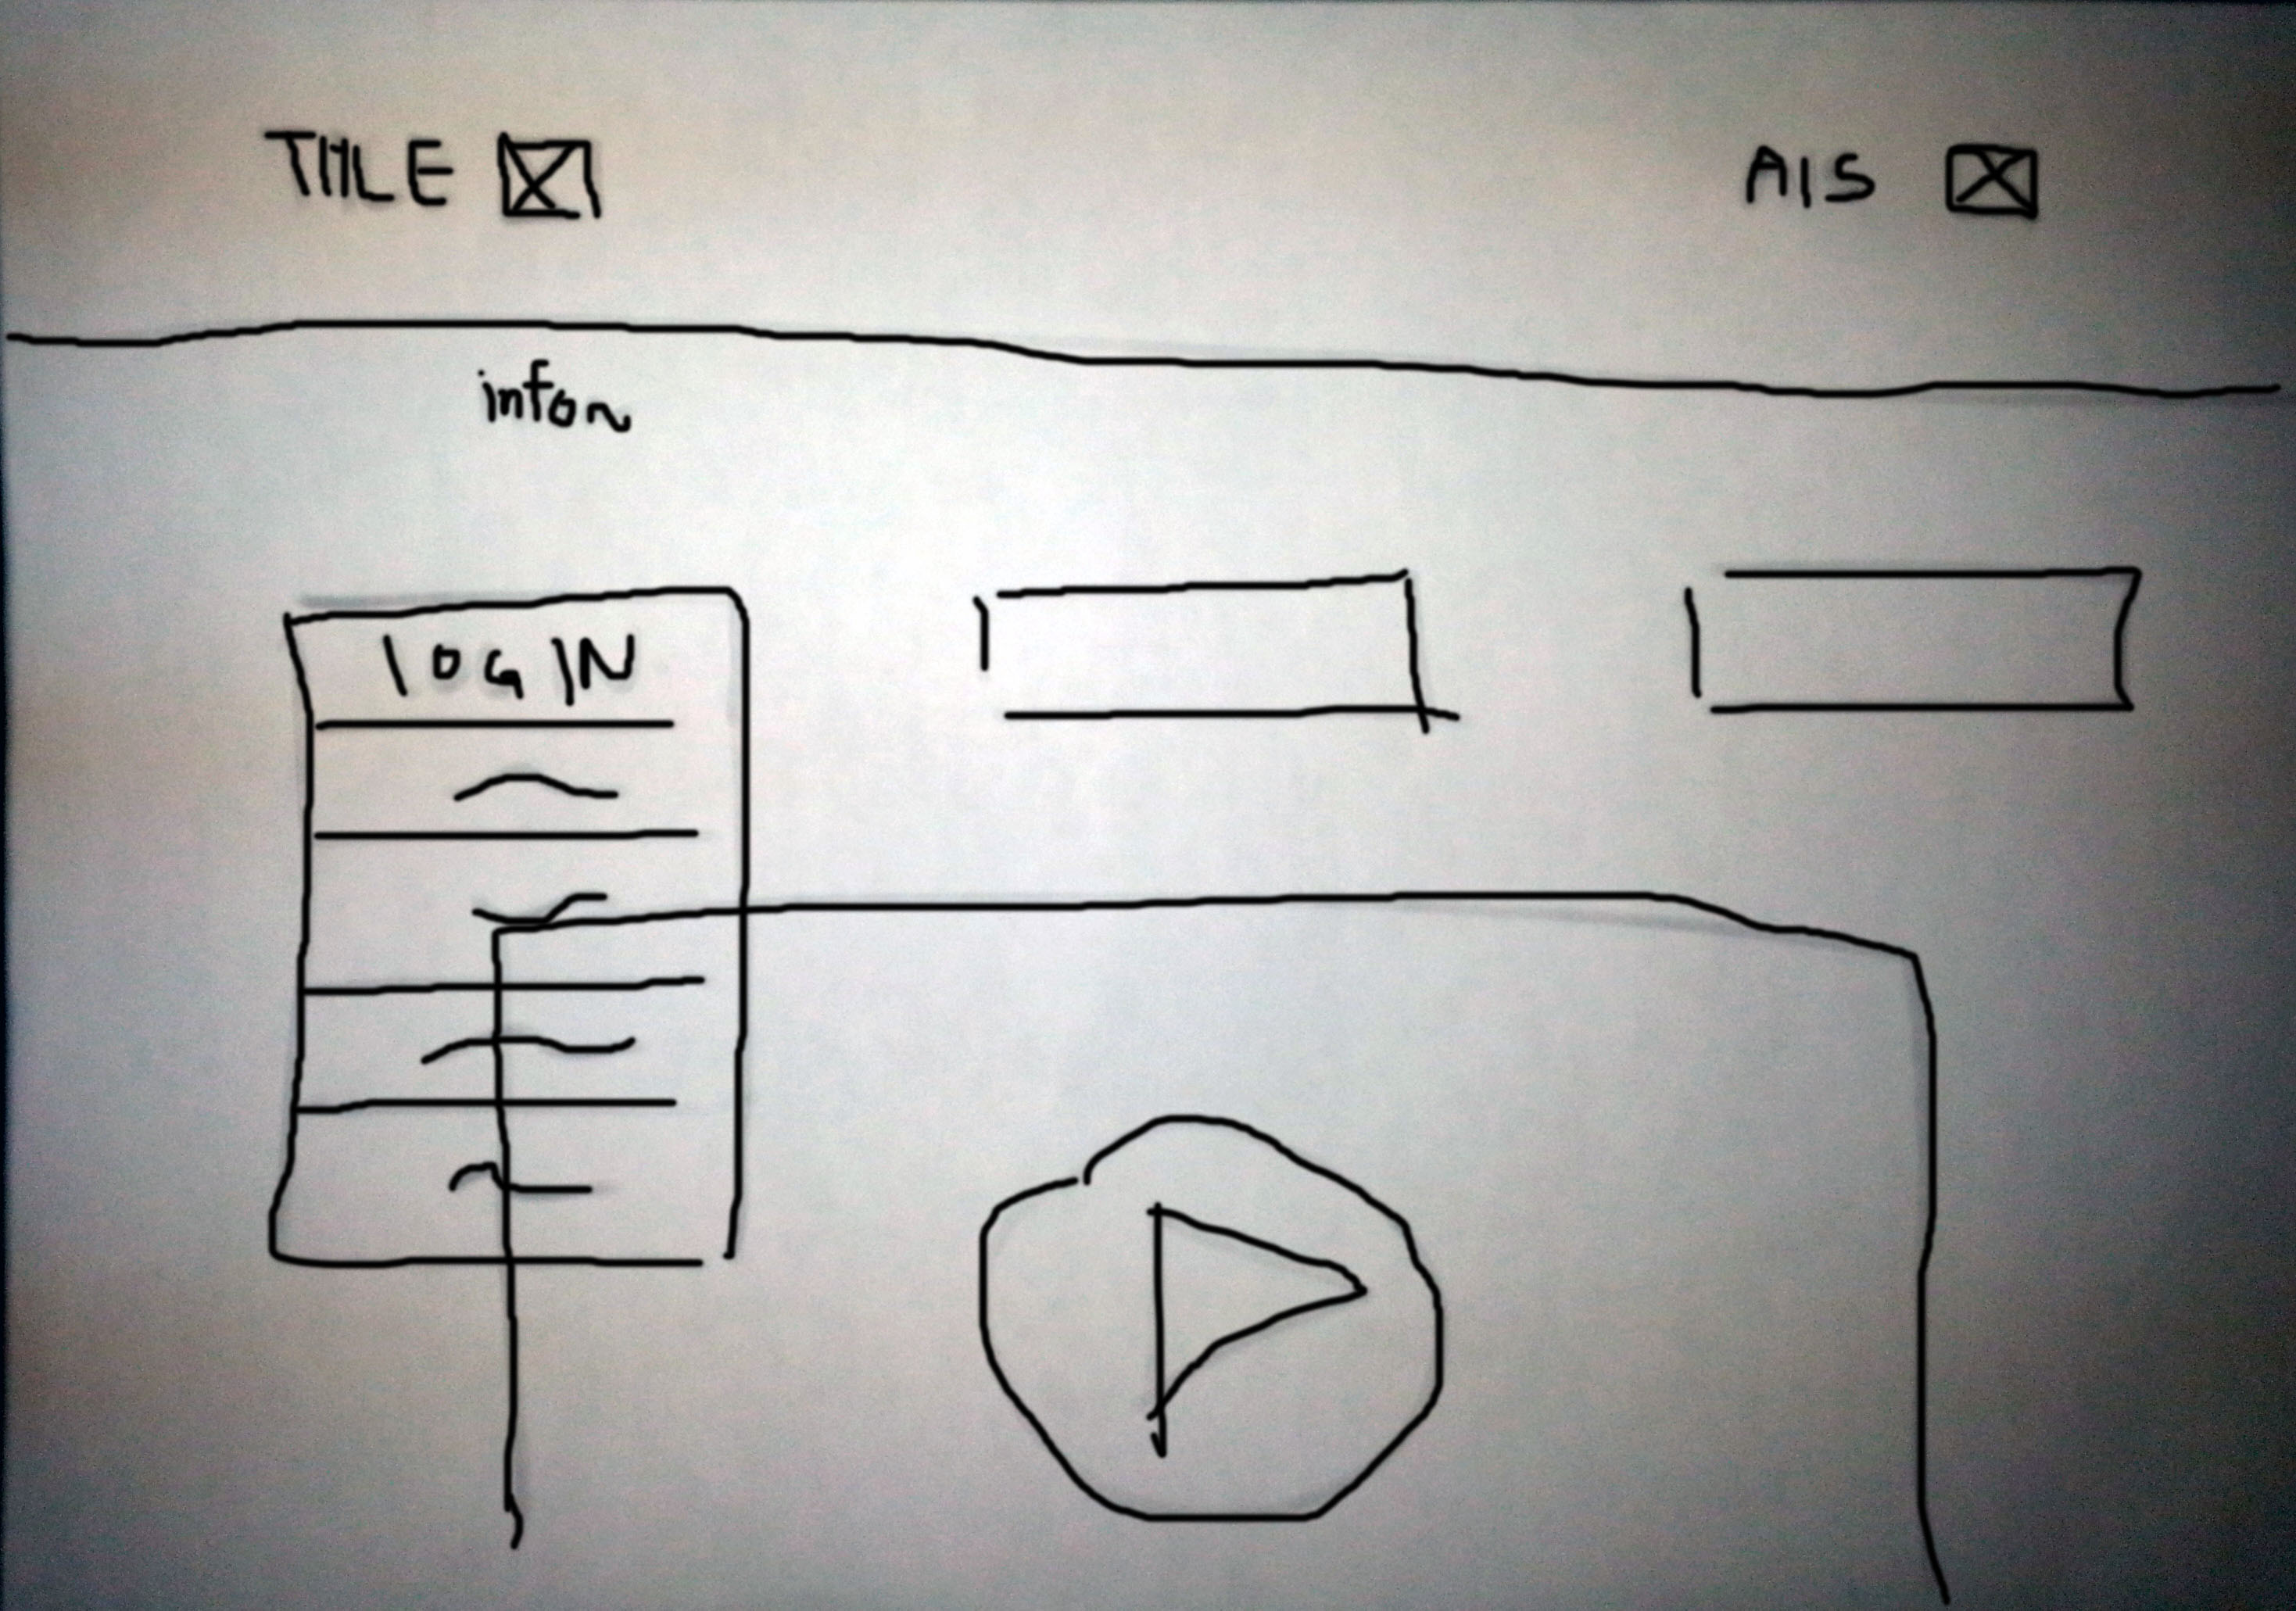 TITLE AIS
infon
LOGIN